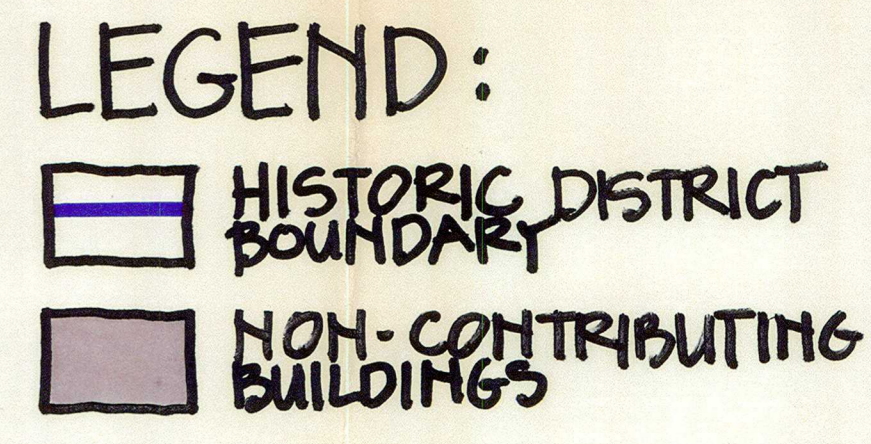 LEGEND:
HISTORIC DISTRICT
BOUNDARY
NON-CONTRIBUTING
BUILDINGS